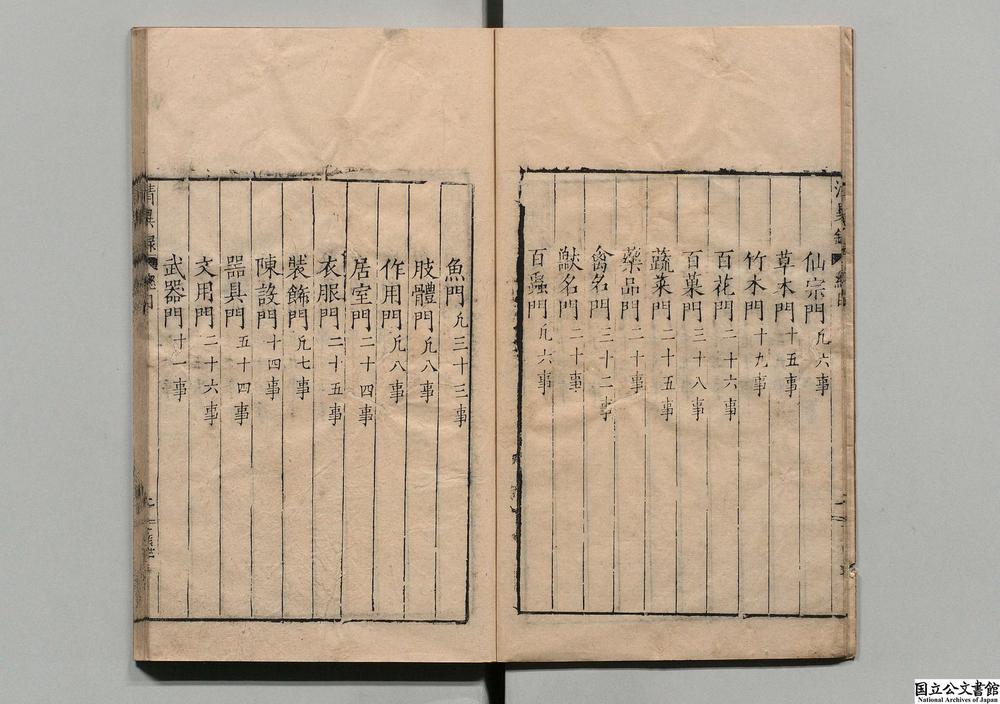 仙宗門凡六事
草木門十五事
竹木門十九事
百花門二十六事
百菓門三十八事
蔬菜門二十五事
藥品門二十事
禽名門三十二事
獸名門二十事
百蟲門凡六事
魚門凡三十三事
肢體門凡八事
作用門凡八事
居室門二十四事
衣服門二十五事
裝飾門凡七事
陳設門十四事
器具門五十四事
文用門二十六事
武器門十一事
清異録 總目
国立公文書館
National Archives of Japan